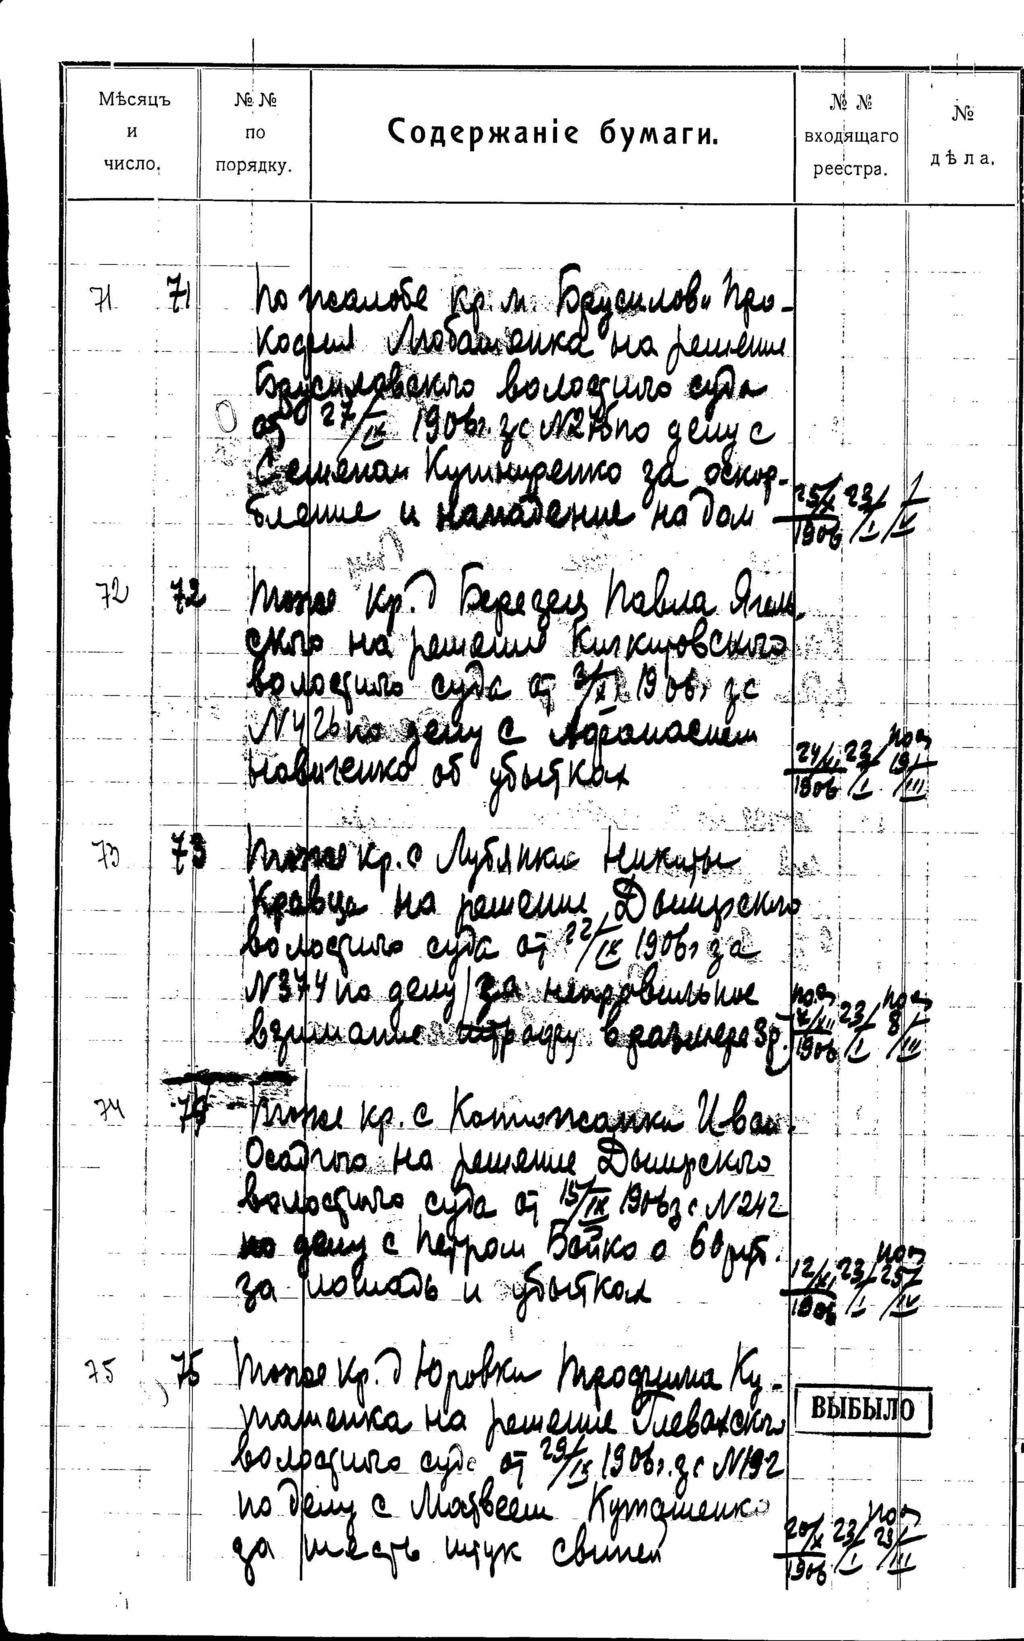 Мѣсяцъ и число.
№№ по порядку.
Содержаніе бумаги.
№ № входящаго реестра.
№ дѣла.
71 71 По жалобе кр. м. Брусилов Про-
кофия Любашенка на решение
Брусиловского волостного суда
от 27/IX 1906 г. за № по делу с
Степаном Кушниренко за оскор-
бление и нападение на дом 25/X 1906 23/I
72 72 Тоже кр. д Березец Павла Ягель-
ского на решение
волостного суда от 1906 г за
№ 426 по делу с Афанасием
Новиченко об убытках 24/XI 1906 23/I
73 73 Тоже кр. с Лубянки Никиты
Кравца на решение Дымерского
волостного суда от 22/IX 1906 г за
№ 374 по делу за неправильное
взимание штрафу в размере 3 р. 1906 23/I 8/III
74 74 Тоже кр. с Катюжанки Иван
Осадчого на решение Дымерского
волостного суда от 15/IX 1906 за № 242
по делу с Петром Бойко о 60 руб.
за лошадь и убытках 12/XI 1906 23/I 25/IV
75 75 Тоже кр. д Юровки Трофима Ку-
ташенка на решение Глевахского
волостного суда от 29/IX 1906 г. за № 192
по делу с Матвеем Куташенко
за шесть штук свиней 20/X 1906 23/I 23/III
ВЫБЫЛО